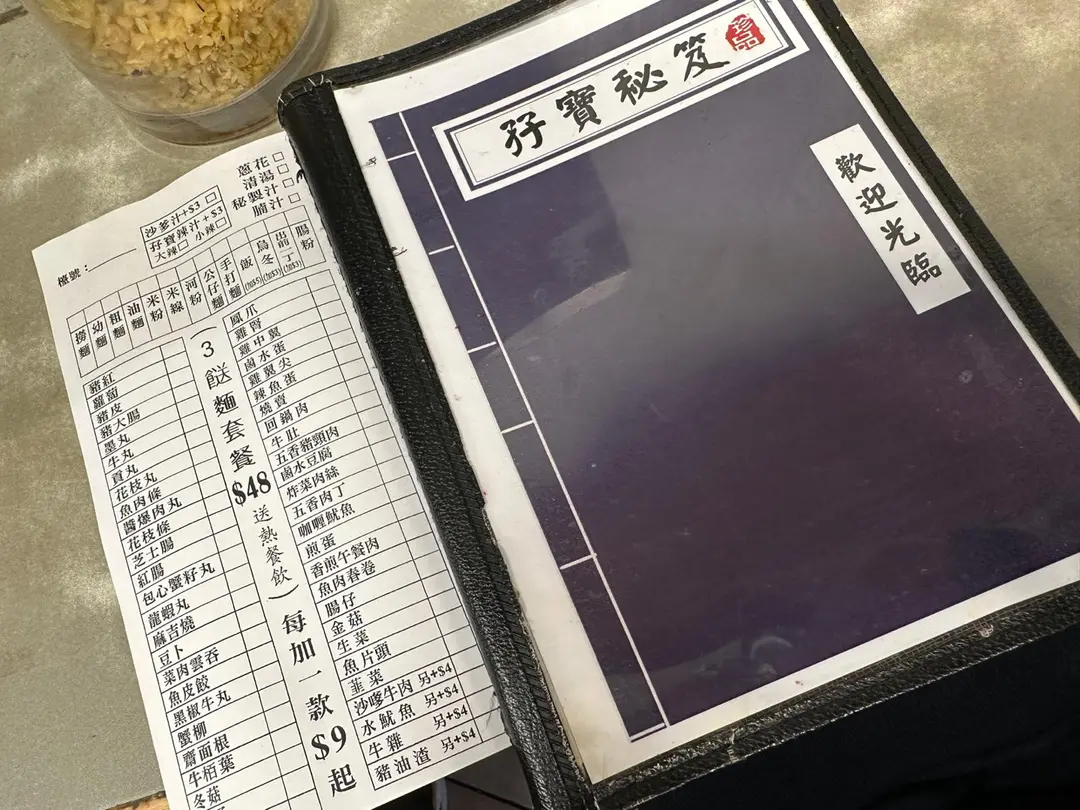 孖寶秘笈
珍品
歡迎光臨
蔥花 □
清湯 □
秘製汁 □
腩汁 □
沙爹汁+$3 □
孖寶辣汁+$3
大辣□ 小辣□
檯號：
撈麵
幼麵
粗麵
油麵
米粉
米線
河粉
公仔麵
手打麵
飯
烏冬
出前一丁
腸粉
豬紅
蘿蔔
豬皮
豬大腸
墨丸
牛丸
貢丸
花枝丸
魚肉條
醬爆肉丸
花枝條
芝士腸
紅腸
包心蟹籽丸
龍蝦丸
麻吉燒
豆卜
菜肉雲吞
魚皮餃
黑椒牛丸
蟹柳
齋面根
牛栢葉
冬菇
(3餸麵套餐$48送熱餐飲)每加一款$9起
鳳爪
雞腎
雞中翼
鹵水蛋
雞翼尖
辣魚蛋
燒賣
回鍋肉
牛肚
五香豬頸肉
鹵水豆腐
炸菜肉絲
五香肉丁
咖喱魷魚
煎蛋
香煎午餐肉
魚肉春卷
腸仔
金菇
生菜
魚片頭
韮菜
沙嗲牛肉 另+$4
水魷魚 另+$4
牛雜 另+$4
豬油渣 另+$4